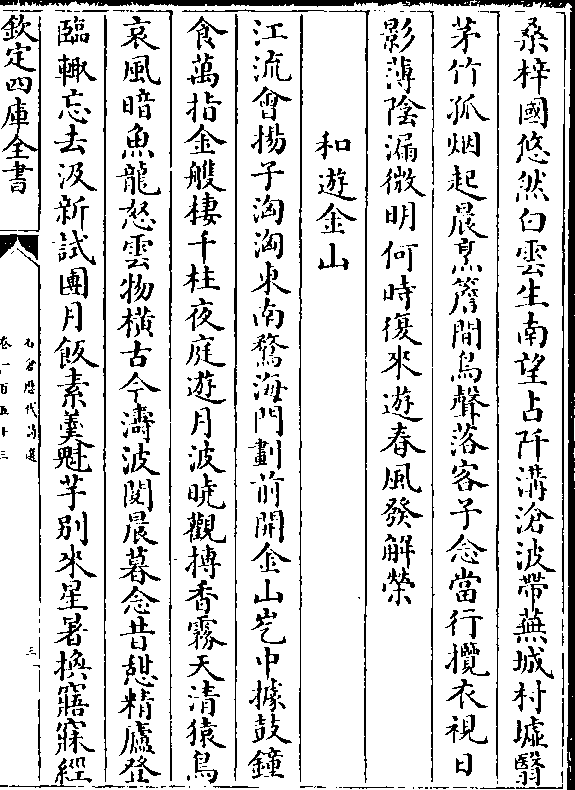 桑梓國悠然白雲生南望占阡溝滄波帶蕪城村墟翳
茅竹孤烟起晨烹簷間鳥聲落客子念當行攬衣視日
影薄陰漏微明何時復來遊春風發解榮
和遊金山
江流會揚子洶洶東南騖海門劃前開金山屹中據鼓鐘
食萬指金艘棲千柱夜庭遊月波曉觀摶香霧天清猿鳥
哀風暗魚龍怒雲物橫古今濤波閱晨暮念昔憩精廬登
臨輒忘去汲新試團月飯素羹魁芋别來星暑換寤寐經
欽定四庫全書
石倉歷代詩選
卷一百五十三
三